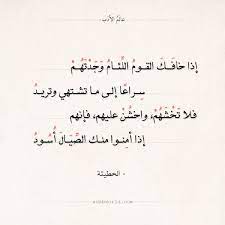 عالم الأدب
إذا خافـكَ القومُ اللّئـامُ وَجَدْتَهُـمْ
سِـراعًا إلى ما تشتهي وتريـدُ
فلا تَخْشَهُمْ، واخشُنْ عليهم، فإنهم
إذا أمِنـوا منـك الصِّيَالَ أُسُـودُ
- الحطيئة